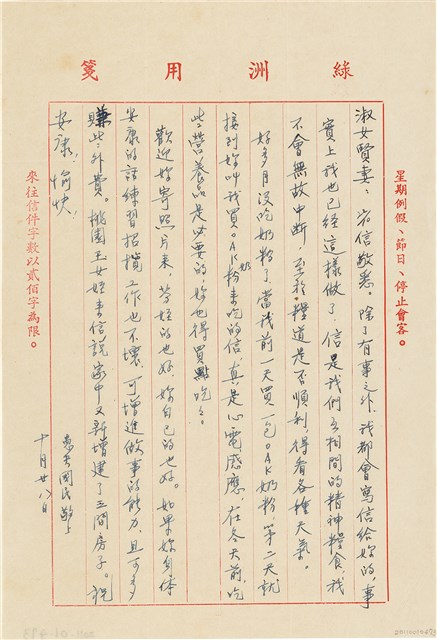 綠洲用箋
星期例假、節日、停止會客。
淑女賢妻：來信敬悉。除了有事之外，我都會寫信給妳的，事
實上我也已經這樣做了，信是我們互相間的精神糧食，我
不會無故中断，至於糧道是否順利，得看各種天氣。
好多月沒吃奶粉了，當我前一天買一包OAK奶粉，第二天就
接到妳叫我買OAK奶粉來吃的信，真是心電感應，在冬天前，吃
些營養品是必要的，妳也得買點吃吃。
歡迎妳寄照片來，芬姪的也好，妳自己的也好。如果妳身体
安康的話練習招攬工作也不壞，可增進做事的能力，且可多
賺些外費。桃園玉女姪來信説家中又新增建了三間房子。祝
安康！愉快！
愚夫國民敬上
十月廿八日
來往信件字數以貳佰字為限。